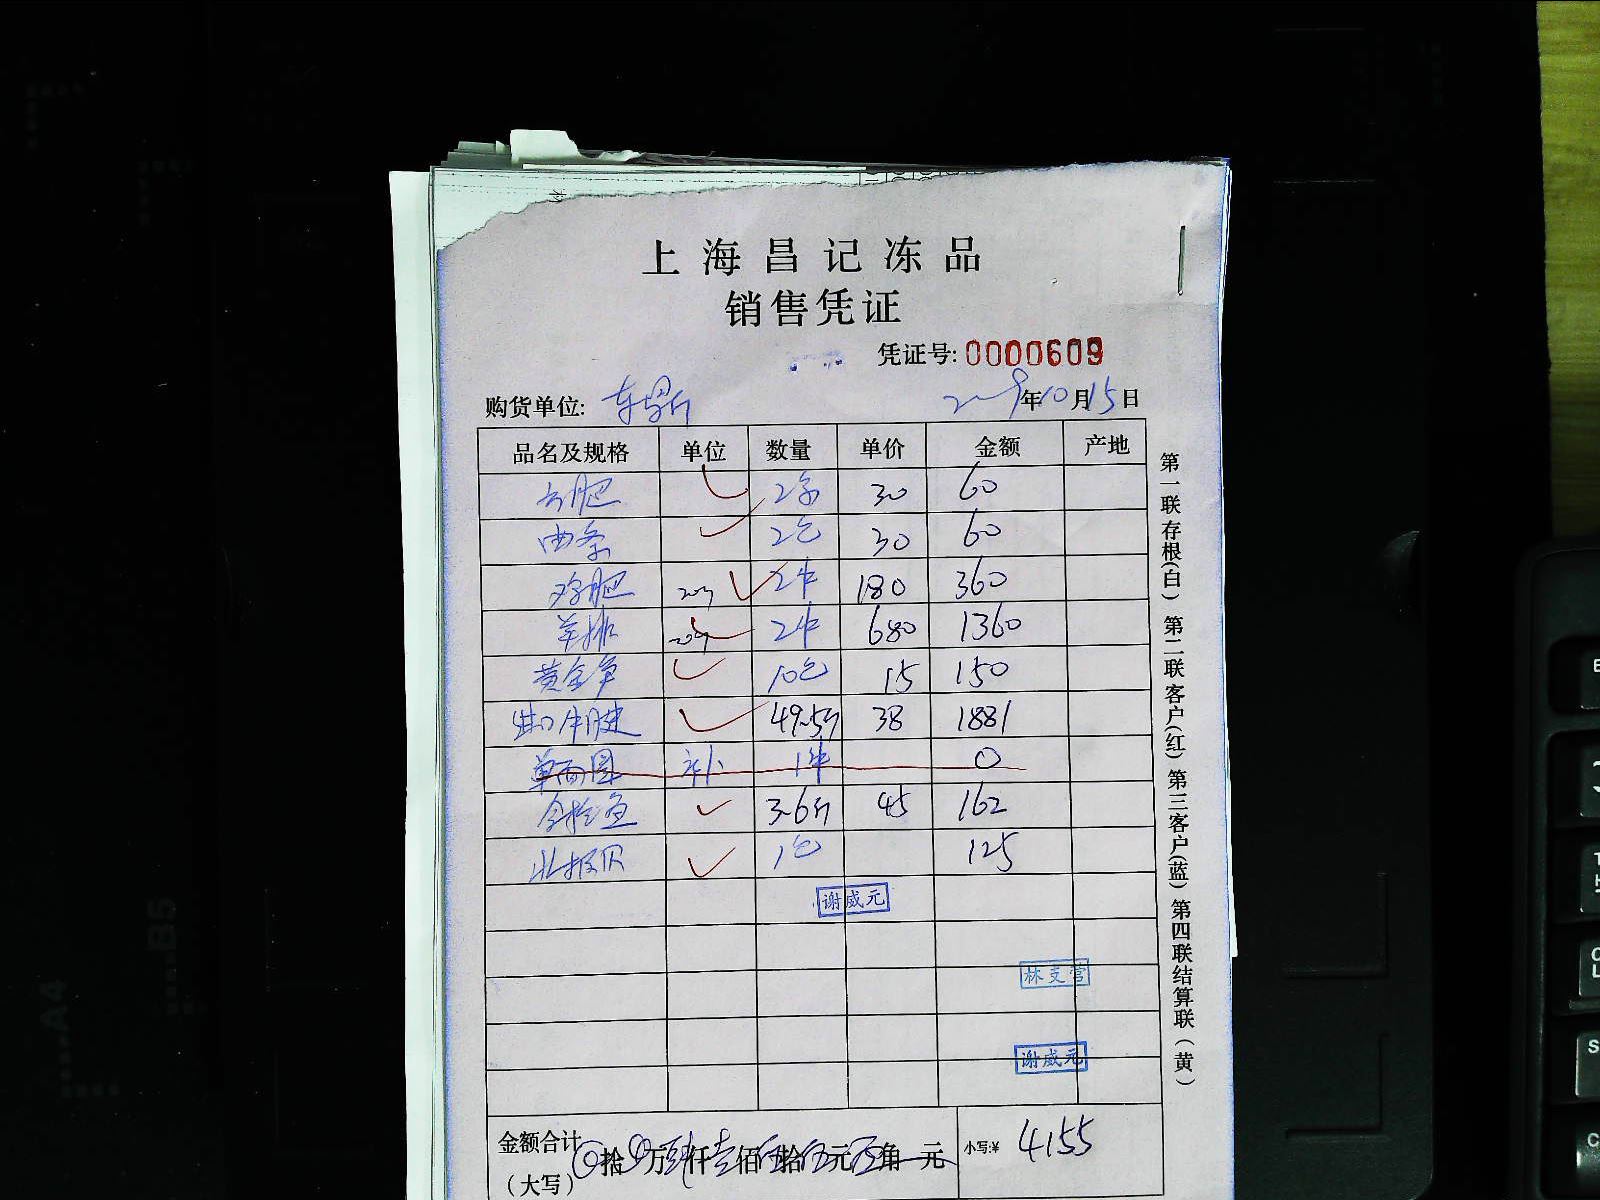 上海昌记冻品
销售凭证
凭证号:0000609
购货单位: 2009年10月15日
品名及规格 单位 数量 单价 金额 产地
30 60
2包 30 60
鸡肥 20斤 2件 180 360
羊排 20斤 2件 680 1360
黄金笋 10包 15 150
进口牛腱 49.5斤 38 1881
单面圆 补 1件 0
3.6斤 45 162
北极贝 1包 125
谢威元
林支营
谢威元
金额合计 拾万肆仟壹佰伍拾伍元 角 元 小写:¥ 4155
(大写)
第一联存根(白) 第二联客户(红) 第三客户(蓝) 第四联结算联(黄)
A4
B5